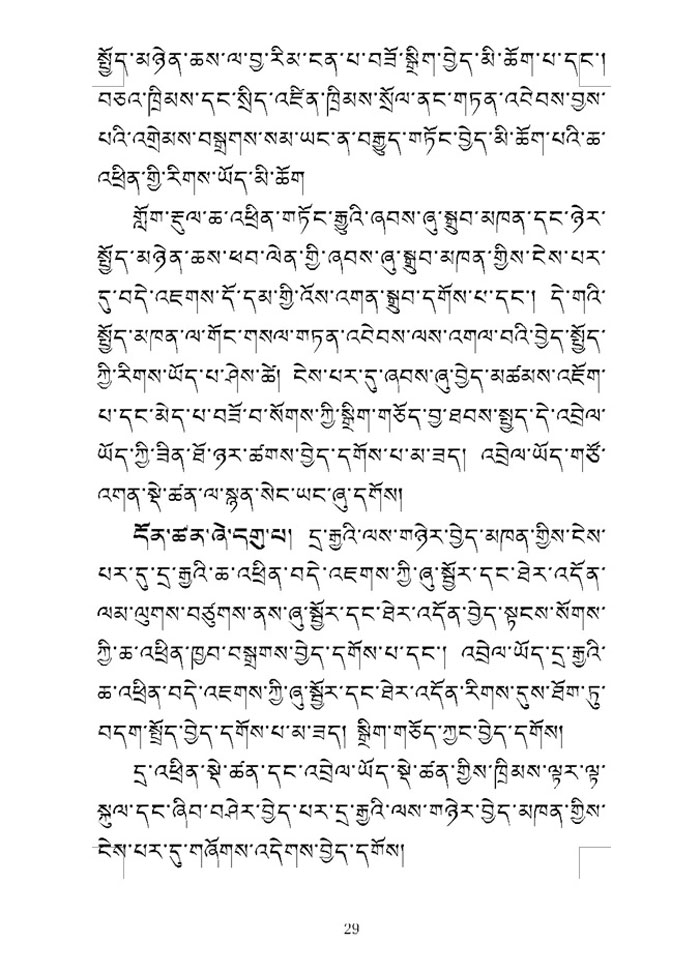 སྤྱོད་མཉེན་ཆས་ལ་བྱ་རིམ་ངན་པ་བཟོ་སྒྲིག་བྱེད་མི་ཆོག་པ་དང་།
བཅའ་ཁྲིམས་དང་སྲིད་འཛིན་ཁྲིམས་སྲོལ་ནང་གཏན་འབེབས་བྱས་
པའི་འགྲེམས་བསྒྲགས་སམ་ཡང་ན་བརྒྱུད་གཏོང་བྱེད་མི་ཆོག་པའི་ཆ་
འཕྲིན་གྱི་རིགས་ཡོད་མི་ཆོག
གློག་རྡུལ་ཆ་འཕྲིན་གཏོང་རྒྱུའི་ཞབས་ཞུ་སྒྲུབ་མཁན་དང་ཉེར་
སྤྱོད་མཉེན་ཆས་ཕབ་ལེན་གྱི་ཞབས་ཞུ་སྒྲུབ་མཁན་གྱིས་ངེས་པར་
དུ་བདེ་འཇགས་དོ་དམ་གྱི་འོས་འགན་སྒྲུབ་དགོས་པ་དང་། དེ་གའི་
སྤྱོད་མཁན་ལ་གོང་གསལ་གཏན་འབེབས་ལས་འགལ་བའི་བྱེད་སྤྱོད་
ཀྱི་རིགས་ཡོད་པ་ཤེས་ཚེ། ངེས་པར་དུ་ཞབས་ཞུ་བྱེད་མཚམས་འཇོག་
པ་དང་མེད་པ་བཟོ་བ་སོགས་ཀྱི་སྒྲིག་གཅོད་བྱ་ཐབས་སྤྱད་དེ་འབྲེལ་
ཡོད་ཀྱི་ཟིན་ཐོ་ཉར་ཚགས་བྱེད་དགོས་པ་མ་ཟད། འབྲེལ་ཡོད་གཙོ་
འགན་སྡེ་ཚན་ལ་སྙན་སེང་ཡང་ཞུ་དགོས།
དོན་ཚན་ཞེ་དགུ་པ། དྲ་རྒྱའི་ལས་གཉེར་བྱེད་མཁན་གྱིས་ངེས་
པར་དུ་དྲ་རྒྱའི་ཆ་འཕྲིན་བདེ་འཇགས་ཀྱི་ཞུ་སྦྱོར་དང་ཐེར་འདོན་
ལམ་ལུགས་བཙུགས་ནས་ཞུ་སྦྱོར་དང་ཐེར་འདོན་བྱེད་སྟངས་སོགས་
ཀྱི་ཆ་འཕྲིན་ཁྱབ་བསྒྲགས་བྱེད་དགོས་པ་དང་། འབྲེལ་ཡོད་དྲ་རྒྱའི་
ཆ་འཕྲིན་བདེ་འཇགས་ཀྱི་ཞུ་སྦྱོར་དང་ཐེར་འདོན་རིགས་དུས་ཐོག་ཏུ་
བདག་སྤྲོད་བྱེད་དགོས་པ་མ་ཟད། སྒྲིག་གཅོད་ཀྱང་བྱེད་དགོས།
དྲ་འཕྲིན་སྡེ་ཚན་དང་འབྲེལ་ཡོད་སྡེ་ཚན་གྱིས་ཁྲིམས་ལྟར་ལྟ་
སྐུལ་དང་ཞིབ་བཤེར་བྱེད་པར་དྲ་རྒྱའི་ལས་གཉེར་བྱེད་མཁན་གྱིས་
ངེས་པར་དུ་གཞོགས་འདེགས་བྱེད་དགོས།
29